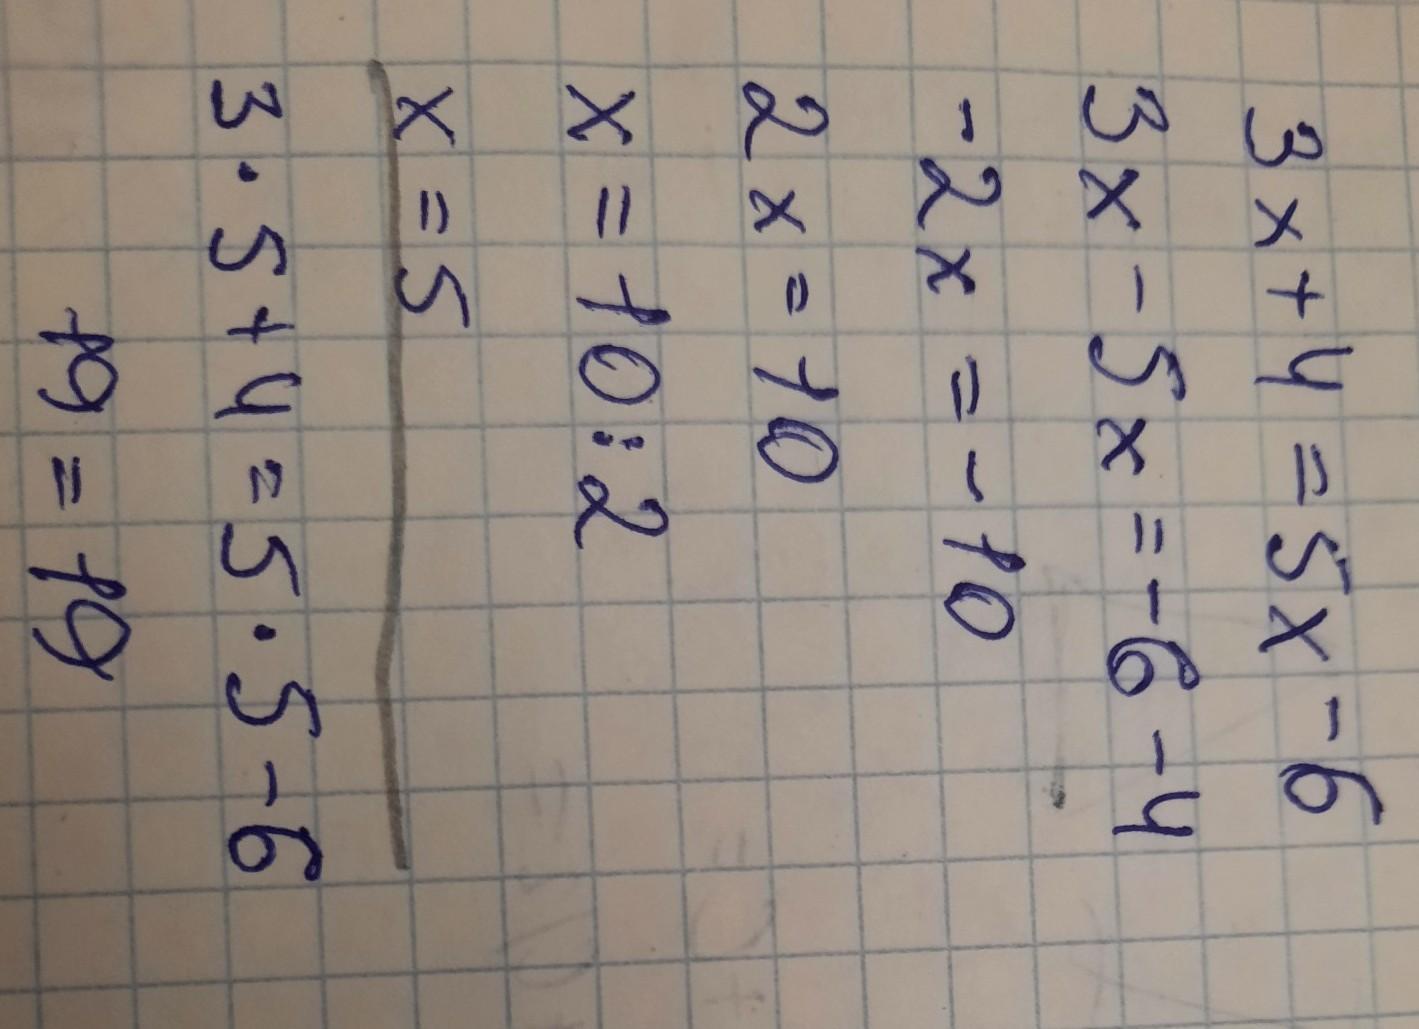 3x+4=5x-6
3x-5x=-6-4
-2x=-10
2x=10
x=10:2
x=5
3·5+4=5·5-6
19=19